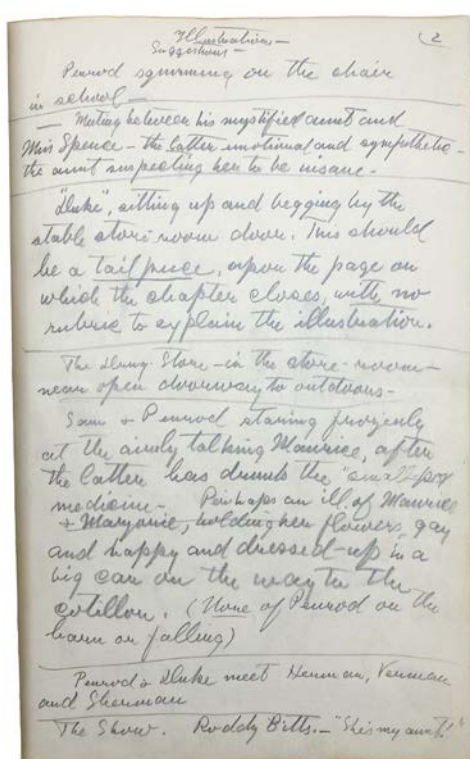 Illustrations —
Suggestions —
2
Penrod squirming on the chair
in school —
— Meeting between his mystified aunt and
Miss Spence — the latter emotional and sympathetic —
the aunt suspecting her to be insane —
"Duke", sitting up and begging by the
stable store-room door. This should
be a tail piece, upon the page on
which the chapter closes, with no
rubric to explain the illustration.
The Drug Store — in the store-room —
near open doorway to outdoors —
Sam & Penrod staring frozenly
at the airily talking Maurice, after
the latter has drunk the "small-pox
medicine — Perhaps an ill. of Maurice
& Marjorie, holding her flowers, gay
and happy and dressed-up in a
big car on the way to the
cotillon. (None of Penrod on the
barn or falling)
Penrod & Duke meet Herman, Verman
and Sherman
The Show. Roddy Bitts. — "She's my aunt!"